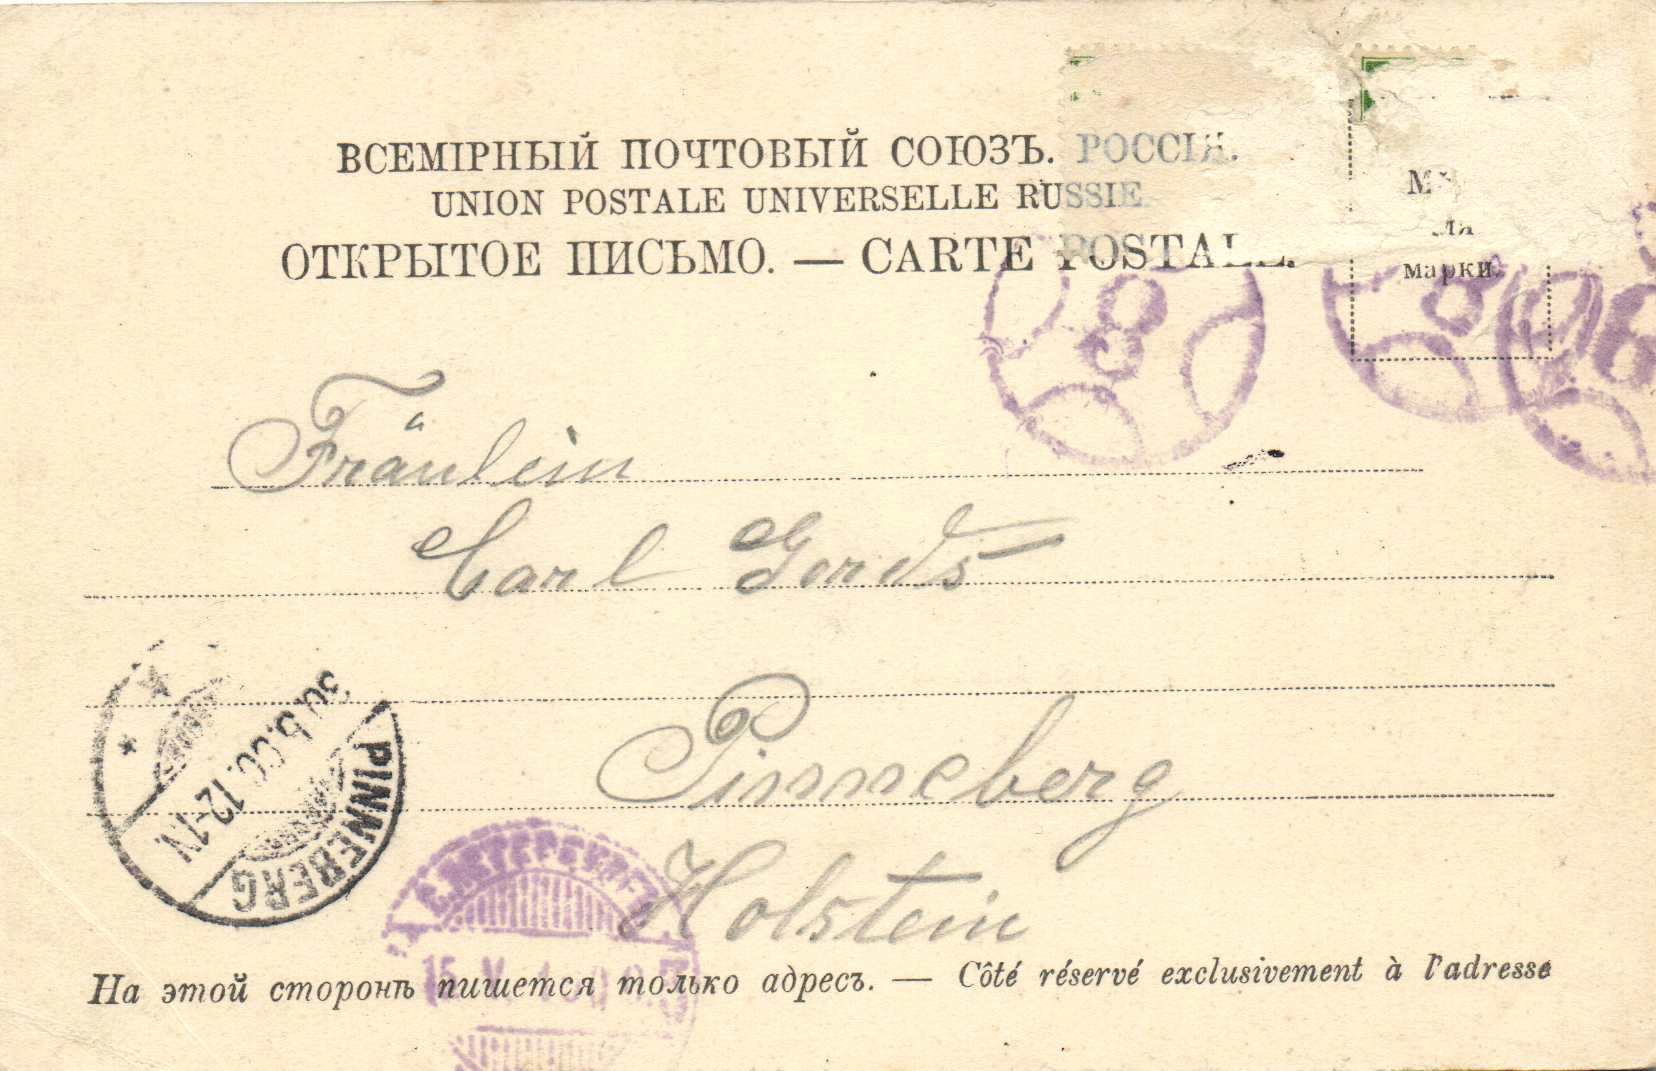 ВСЕМІРНЫЙ ПОЧТОВЫЙ СОЮЗЪ. РОССІЯ.
UNION POSTALE UNIVERSELLE RUSSIE.
ОТКРЫТОЕ ПИСЬМО. — CARTE POSTALE.
марки.
8
8
8
Fräulein
Carl Gerds
Pinneberg
Holstein
PINNEBERG
30.5.00.12-1N
С.ПЕТЕРБУРГЪ
15 V
На этой сторонѣ пишется только адресъ. — Côté réservé exclusivement à l'adresse